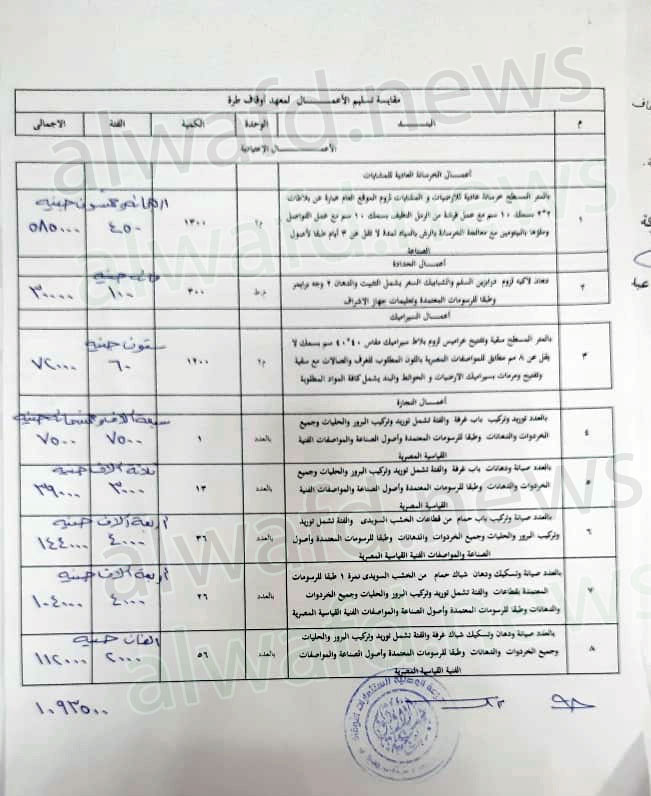 مقايسة تسليم الأعمـــــــال لمعهد أوقاف طرة
م البنـــــد الوحدة الكمية الفئة الاجمالى
الأعمـــــــال الإعتيادية
أعمـال الخرسانة العادية للمشايات
١ بالمتر المسطح خرسانة عادية للارضيات و المشايات لزوم الموقع العام عبارة عن بلاطات
٢*٢ بسمك ١٠ سم مع عمل فرشة من الرمل النظيف بسمك ١٠ سم مع عمل الفواصل
وملؤها بالبيتومين مع معالجة الخرسانة بالرش بالمياه لمدة لا تقل عن ٣ أيام طبقا لأصول
الصناعة
م٢ ١٣٠٠ ٤٥٠ ٥٨٥٠٠٠
أعمـال الحدادة
٢ دهانات لاكيه لزوم درابزين السلم والشبابيك السعر يشمل التثبيت والدهان ٢ وجه برايمر
وطبقا للرسومات المعتمدة وتعليمات جهاز الاشراف
م.ط ٣٠٠ مائة جنيه ١٠٠ ٣٠٠٠٠
أعمـال السيراميك
٣ بالمتر المسطح سقية وتفتيح عراميس لزوم بلاط سيراميك مقاس ٤٠*٤٠ سم بسمك لا
يقل عن ٨ مم مطابق للمواصفات المصرية باللون المطلوب للغرف والصالات مع سقية
وتفتيح ومرمات بسيراميك الارضيات و الحوائط والبند يشمل كافة المواد المطلوبة
م٢ ١٢٠٠ ستون جنيه ٦٠ ٧٢٠٠٠
أعمـال النجارة
٤ بالعدد توريد وتركيب باب غرفة والفئة تشمل توريد وتركيب البرور والحليات وجميع
الخردوات والدهانات وطبقا للرسومات المعتمدة وأصول الصناعة والمواصفات الفنية
القياسية المصرية
بالعدد ١ سبعة آلاف وخمسمائة جنيه ٧٥٠٠ ٧٥٠٠
٥ بالعدد صيانة ودهانات باب غرفة والفئة تشمل توريد وتركيب البرور والحليات وجميع
الخردوات والدهانات وطبقا للرسومات المعتمدة وأصول الصناعة والمواصفات الفنية
القياسية المصرية
بالعدد ١٣ ثلاثة آلاف جنيه ٣٠٠٠ ٣٩٠٠٠
٦ بالعدد صيانة وتركيب باب حمام من قطاعات الخشب السويدى والفئة تشمل توريد
وتركيب البرور والحليات وجميع الخردوات والدهانات وطبقا للرسومات المعتمدة وأصول
الصناعة والمواصفات الفنية القياسية المصرية
بالعدد ٣٦ أربعة آلاف جنيه ٤٠٠٠ ١٤٤٠٠٠
٧ بالعدد صيانة وتسكيك ودهان شباك حمام من الخشب السويدى نمرة ١ طبقا للرسومات
المعتمدة بقطاعات والفئة تشمل توريد وتركيب البرور والحليات وجميع الخردوات
والدهانات وطبقا للرسومات المعتمدة وأصول الصناعة والمواصفات الفنية القياسية المصرية
بالعدد ٢٦ أربعة آلاف جنيه ٤٠٠٠ ١٠٤٠٠٠
٨ بالعدد صيانة ودهان وتسكيك شباك غرفة والفئة تشمل توريد وتركيب البرور والحليات
وجميع الخردوات والدهانات وطبقا للرسومات المعتمدة وأصول الصناعة والمواصفات
الفنية القياسية المصرية
بالعدد ٥٦ ألفان جنيه ٢٠٠٠ ١١٢٠٠٠
١٠٩٣٥٠٠
alwafd.news
alwafd.news
alwafd.news
alwafd.news
alwafd.news
alwafd.news